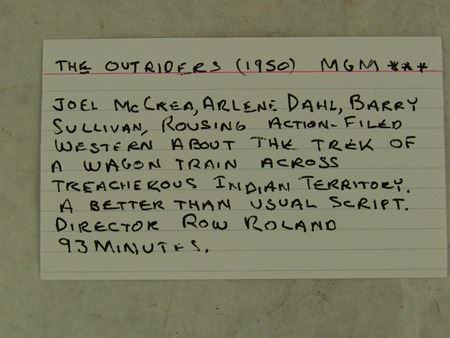 THE OUTRIDERS (1950) MGM ***
JOEL McCREA, ARLENE DAHL, BARRY
SULLIVAN, ROUSING ACTION-FILED
WESTERN ABOUT THE TREK OF
A WAGON TRAIN ACROSS
TREACHEROUS INDIAN TERRITORY.
A BETTER THAN USUAL SCRIPT.
DIRECTOR ROW ROLAND
93 MINUTES.